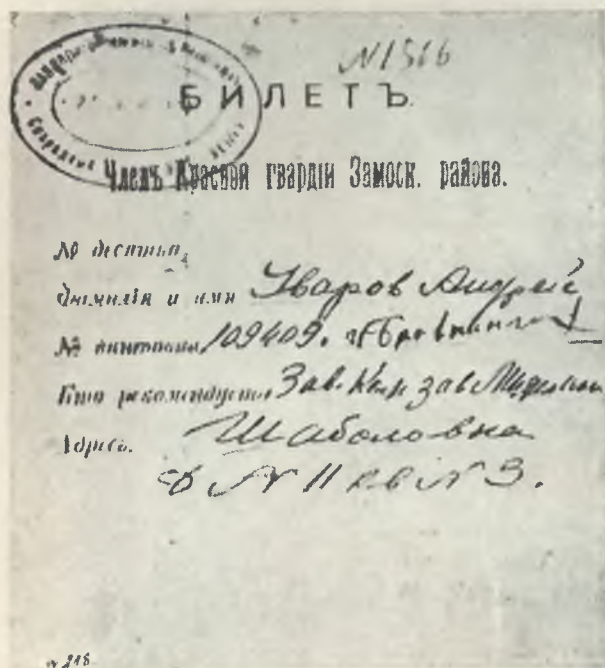 № 1516
БИЛЕТЪ.
Членъ Красной гвардіи Замоск. района.
№ десятка
Фамилія и имя Уваров Андрей
№ винтовки 109409. и Браунинг
Кто рекомендуетъ Зав. Ком зав
Адресъ. Шаболовка
д № 11 кв № 3.